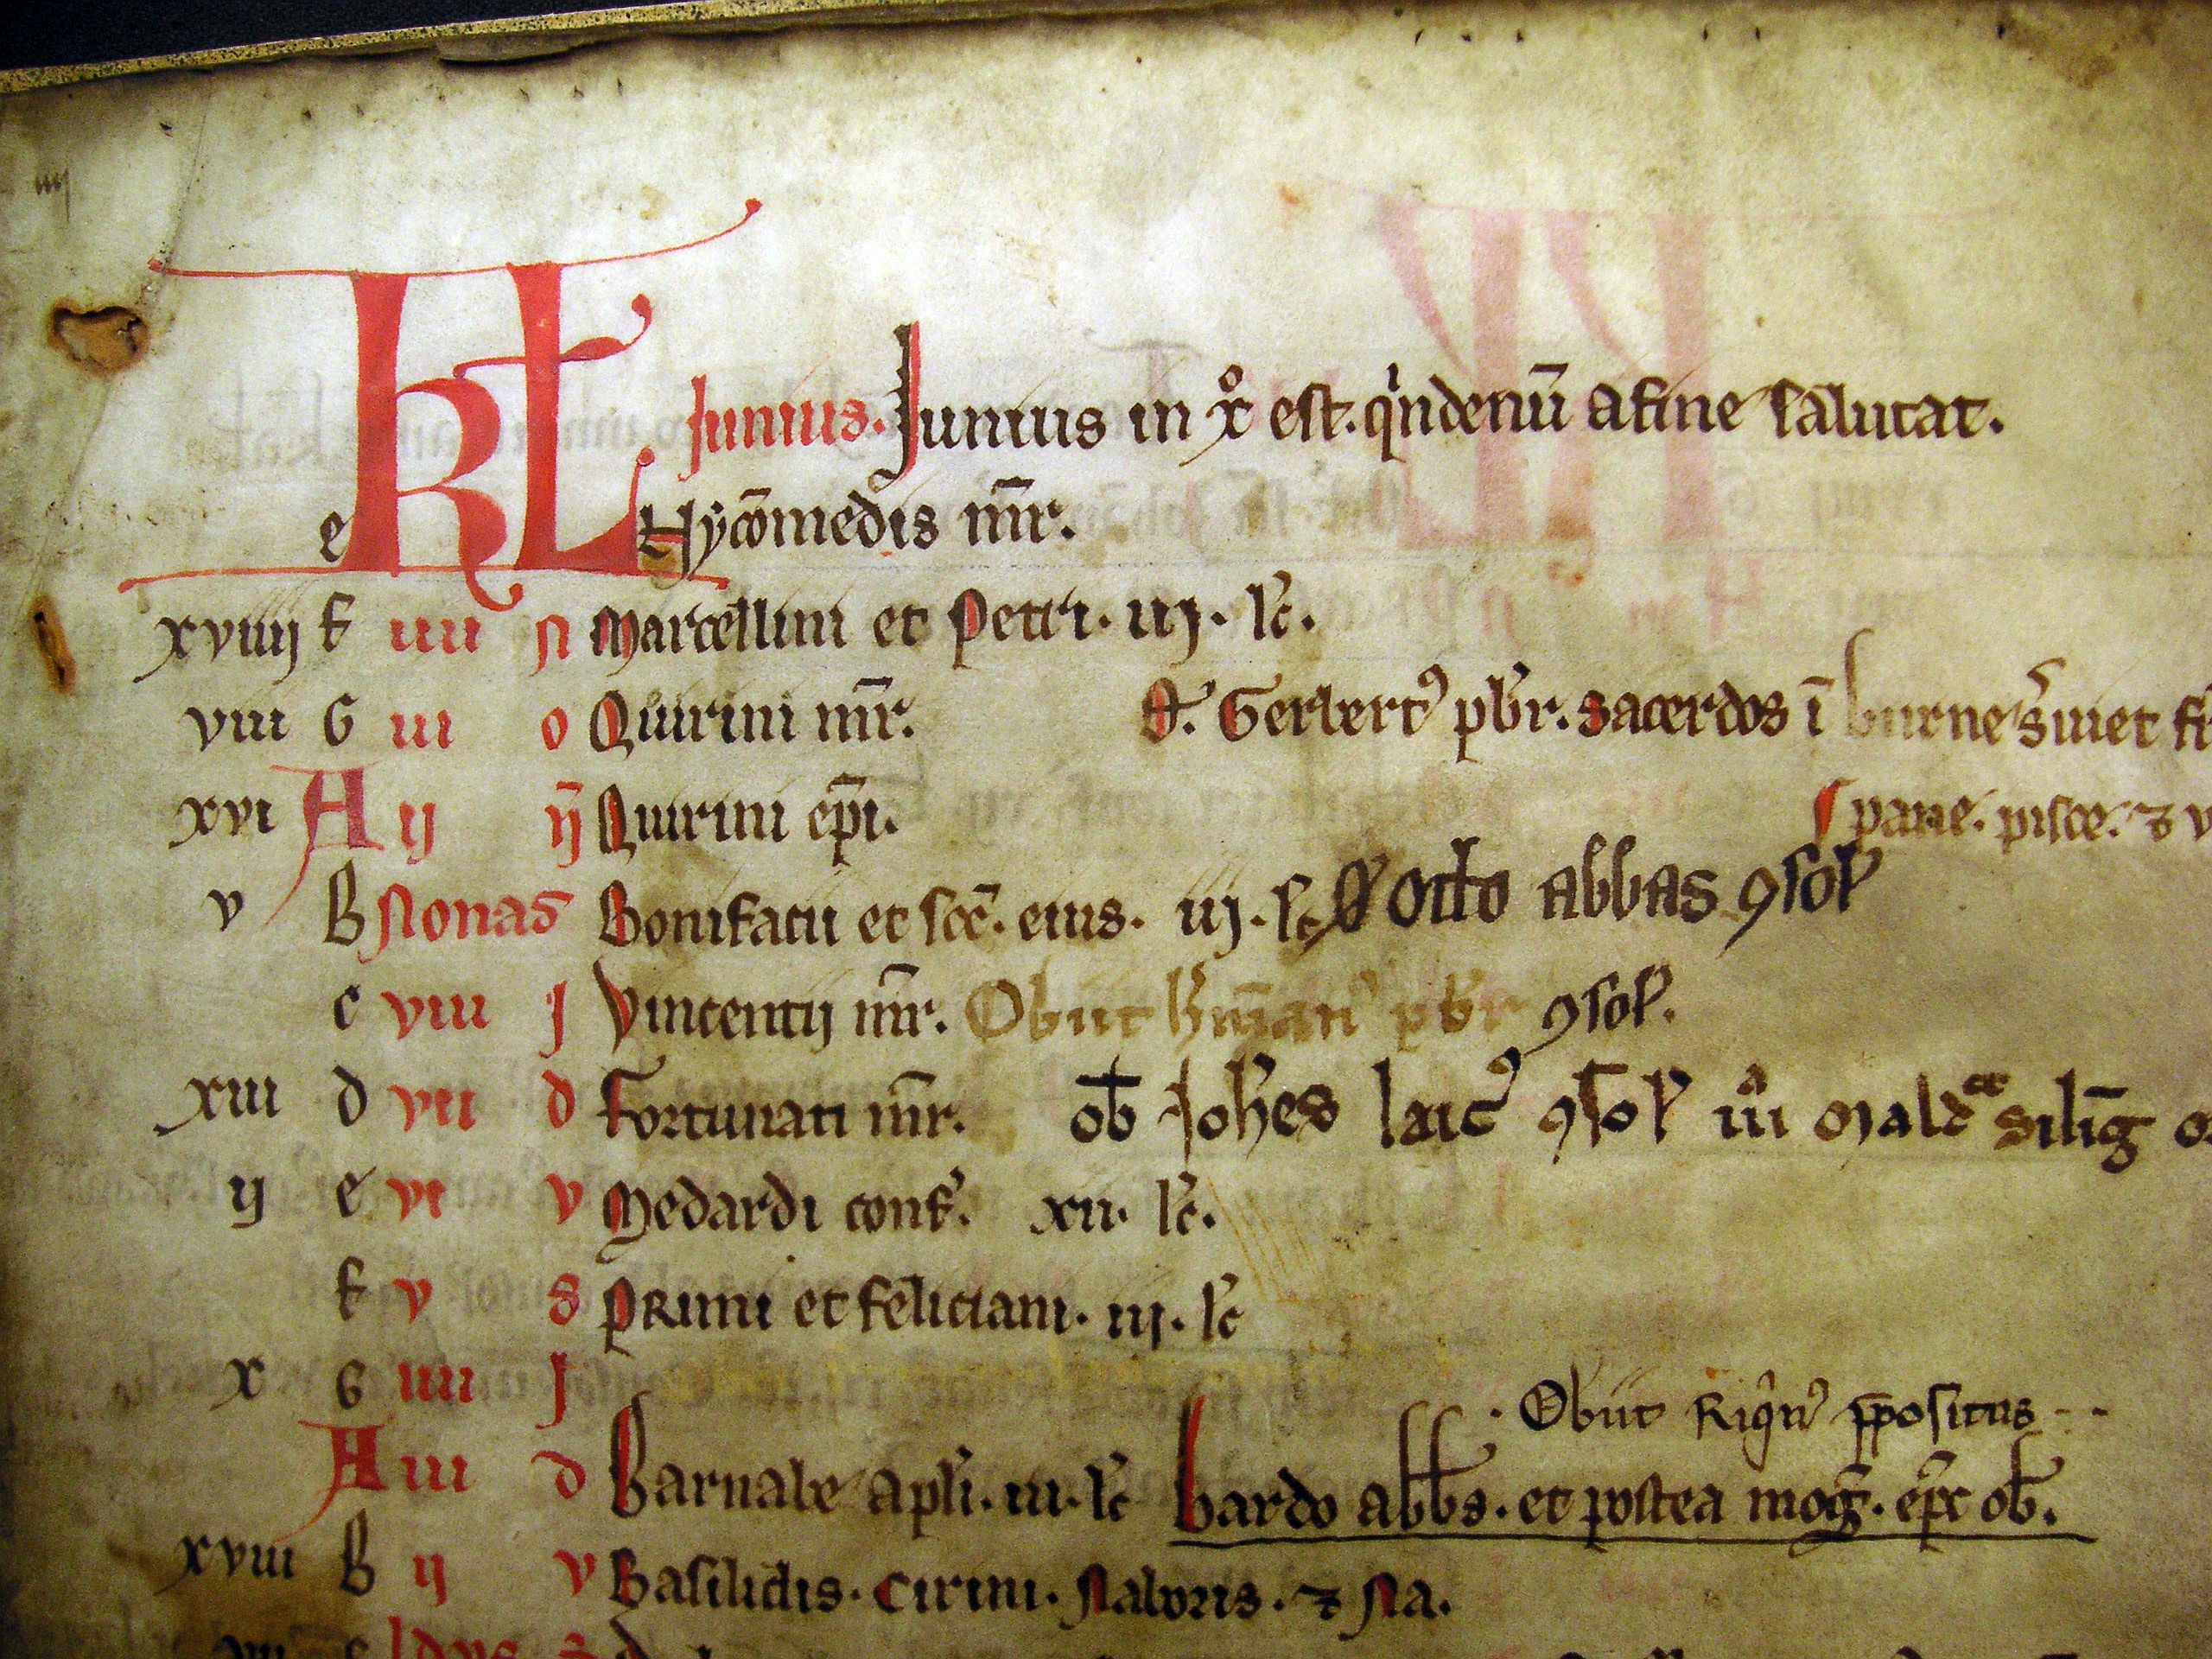 iiij
KL Junius. Junius in xº est. qindenū a fine salutat.
e Hycōmedis mr̄.
xviiij f iiii n Marcellini et Petri. iij. lc̄.
viii G iii o Quirini mr̄. Gerbert⁹ pbr̄. sacerdos ī
xvi A ij ij̄ Quirini ep̄i.
pane. pisce. ⁊ v
v B Nonas Bonifatii et soc̄. eius. iij. lc̄ Otto abbas ꝯsol̓
c viii j Vincentij mr̄. Obiit pbr̄ ꝯsol̓.
xiii d vii d Fortunati mr̄. ob̄ Joh̄es laic⁹ ꝯsol̓ silīg
ij e vi v Medardi conf̓. xii. lc̄.
f v s Primi et feliciani. iij. lc̄
x G iiii j
Obiit p̄positus
A iii d Barnabe apl̓i. iii. lc̄ bardo abb̄s. et postea mog̓. ep̄c ob̄.
xviii B ij v Basilidis. Cirini. Naboris. ⁊ Na.